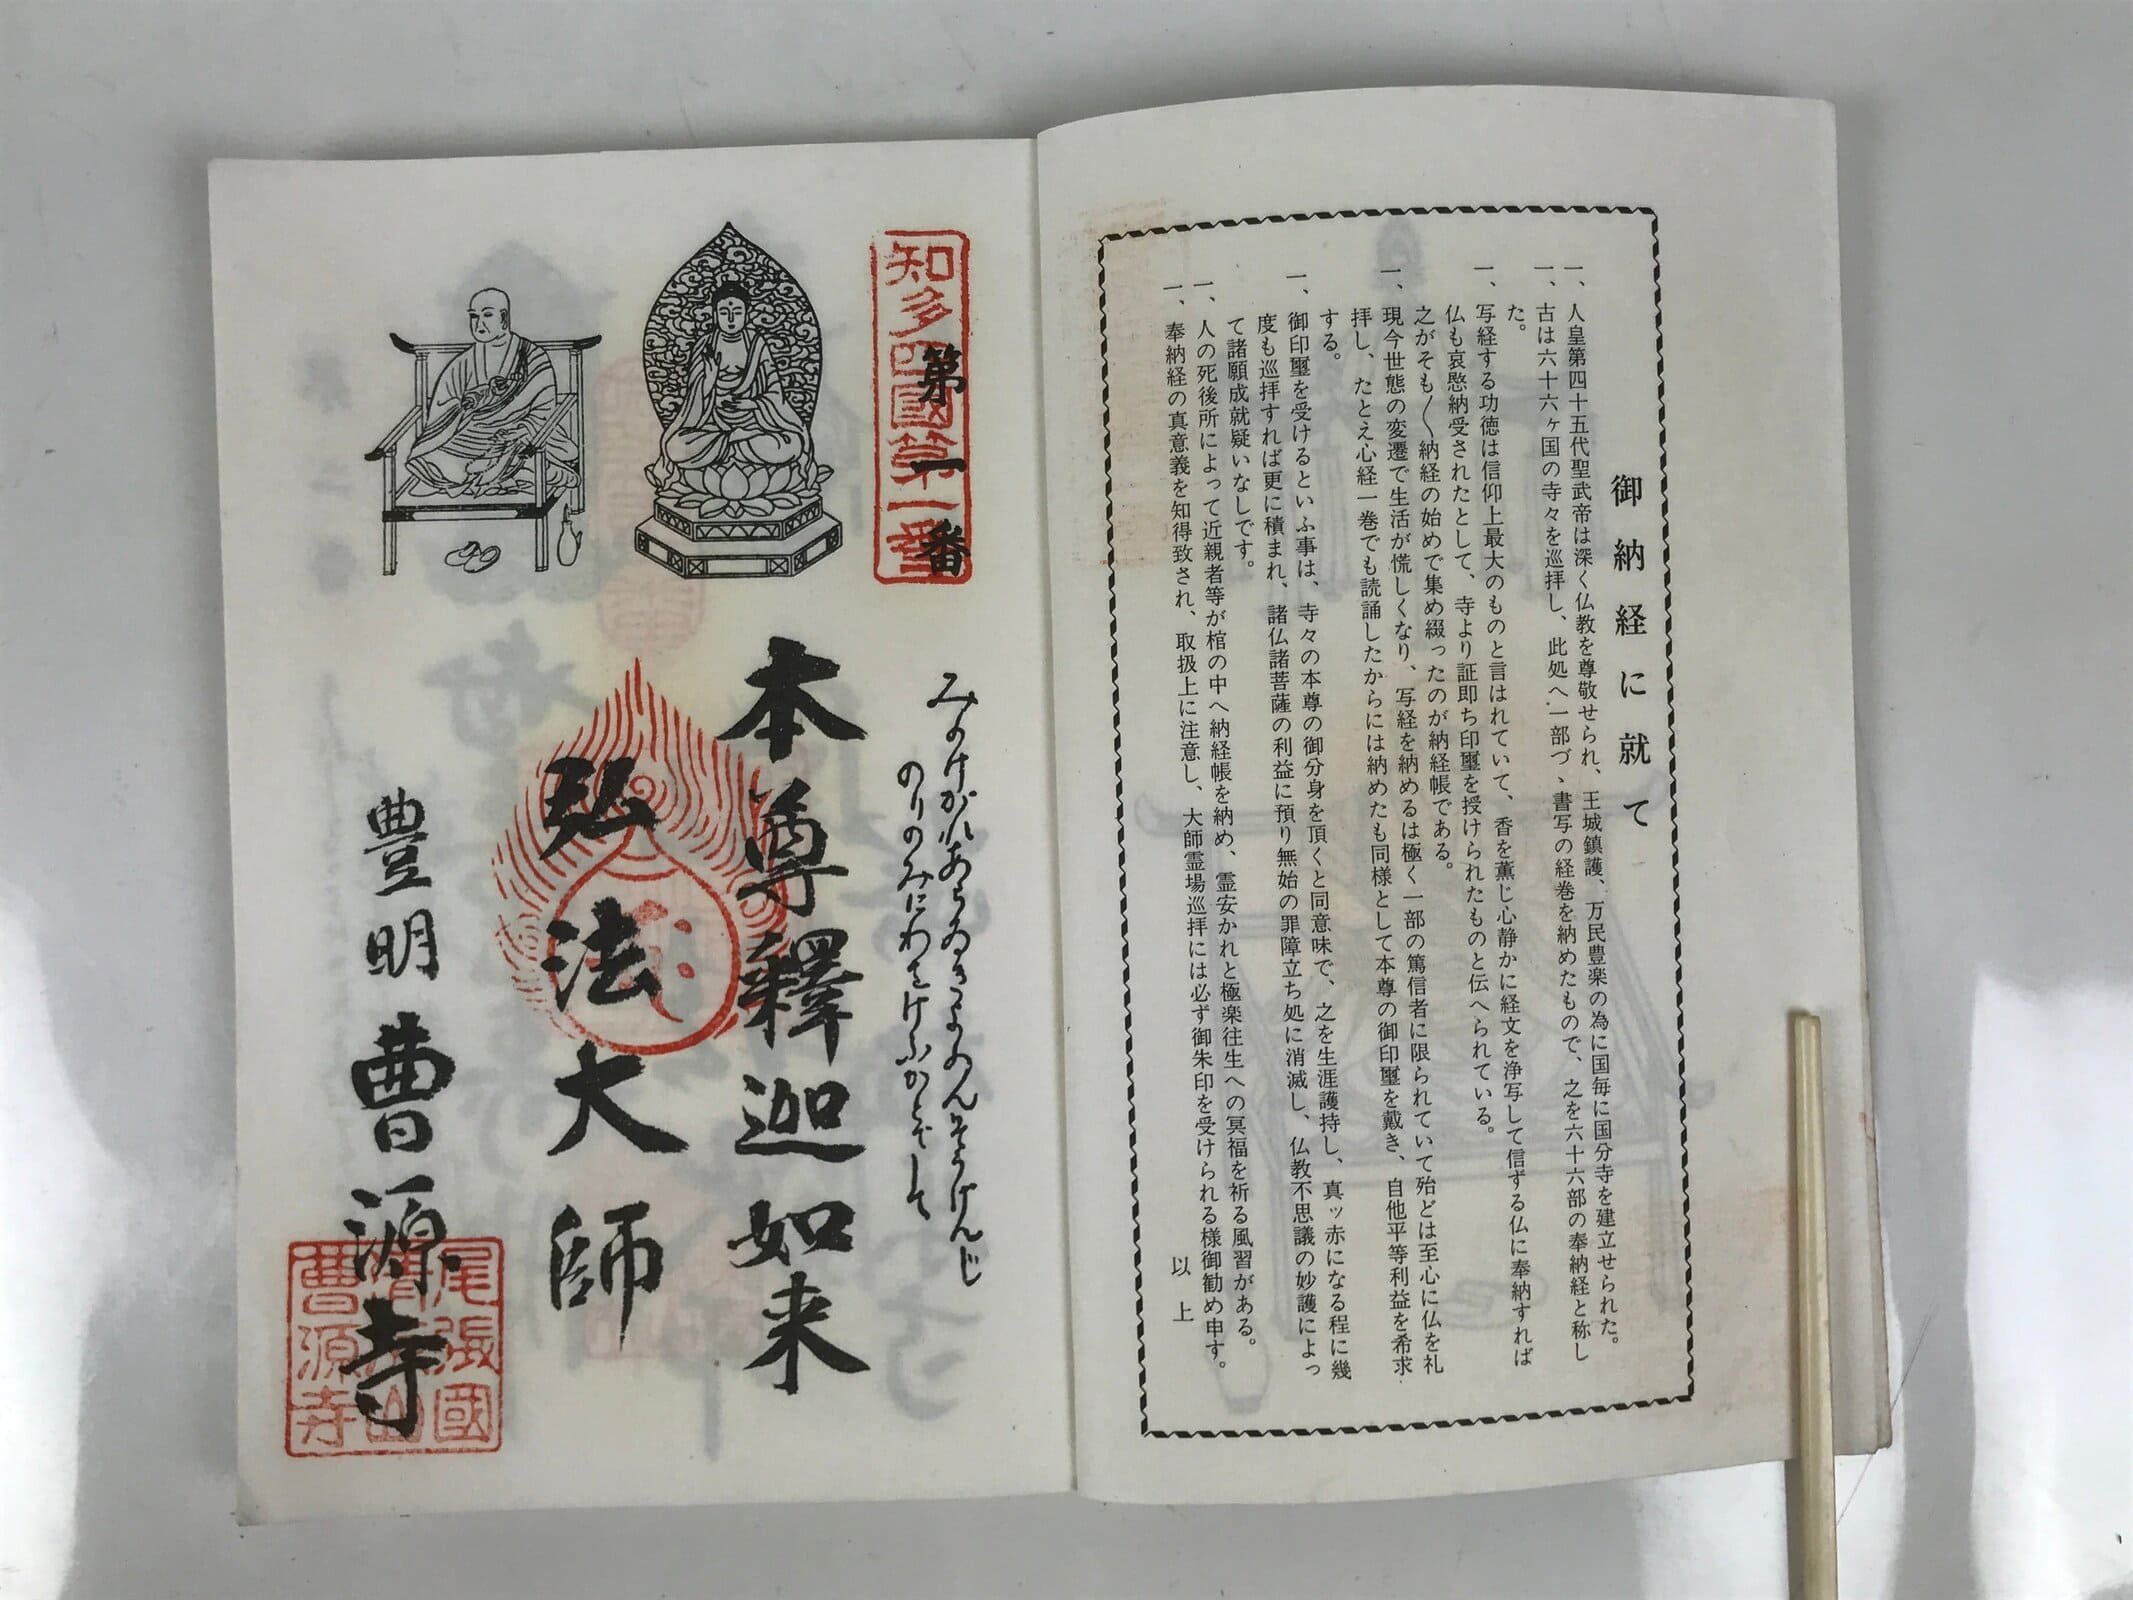 御納経に就て
一、人皇第四十五代聖武帝は深く仏教を尊敬せられ、王城鎮護、万民豊楽の為に国毎に国分寺を建立せられた。
一、古は六十六ヶ国の寺々を巡拝し、此処へ一部づゝ書写の経巻を納めたもので、之を六十六部の奉納経と称し
た。
一、写経する功徳は信仰上最大のものと言はれていて、香を薫じ心静かに経文を浄写して信ずる仏に奉納すれば
仏も哀愍納受されたとして、寺より証即ち印璽を授けられたものと伝へられている。
之がそも〱納経の始めで集め綴ったのが納経帳である。
一、現今世態の変遷で生活が慌しくなり、写経を納めるは極く一部の篤信者に限られていて殆どは至心に仏を礼
拝し、たとえ心経一巻でも読誦したからには納めたも同様として本尊の御印璽を戴き、自他平等利益を希求
する。
一、御印璽を受けるといふ事は、寺々の本尊の御分身を頂くと同意味で、之を生涯護持し、真ッ赤になる程に幾
度も巡拝すれば更に積まれ、諸仏諸菩薩の利益に預り無始の罪障立ち処に消滅し、仏教不思議の妙護によっ
て諸願成就疑いなしです。
一、人の死後所によって近親者等が棺の中へ納経帳を納め、霊安かれと極楽往生への冥福を祈る風習がある。
一、奉納経の真意義を知得致され、取扱上に注意し、大師霊場巡拝には必ず御朱印を受けられる様御勧め申す。
以上
知多四國第一番
第一番
のりのみにわをけふかどでして
本尊釋迦如来
弘法大師
豊明曹源寺
尾張國
曹源寺